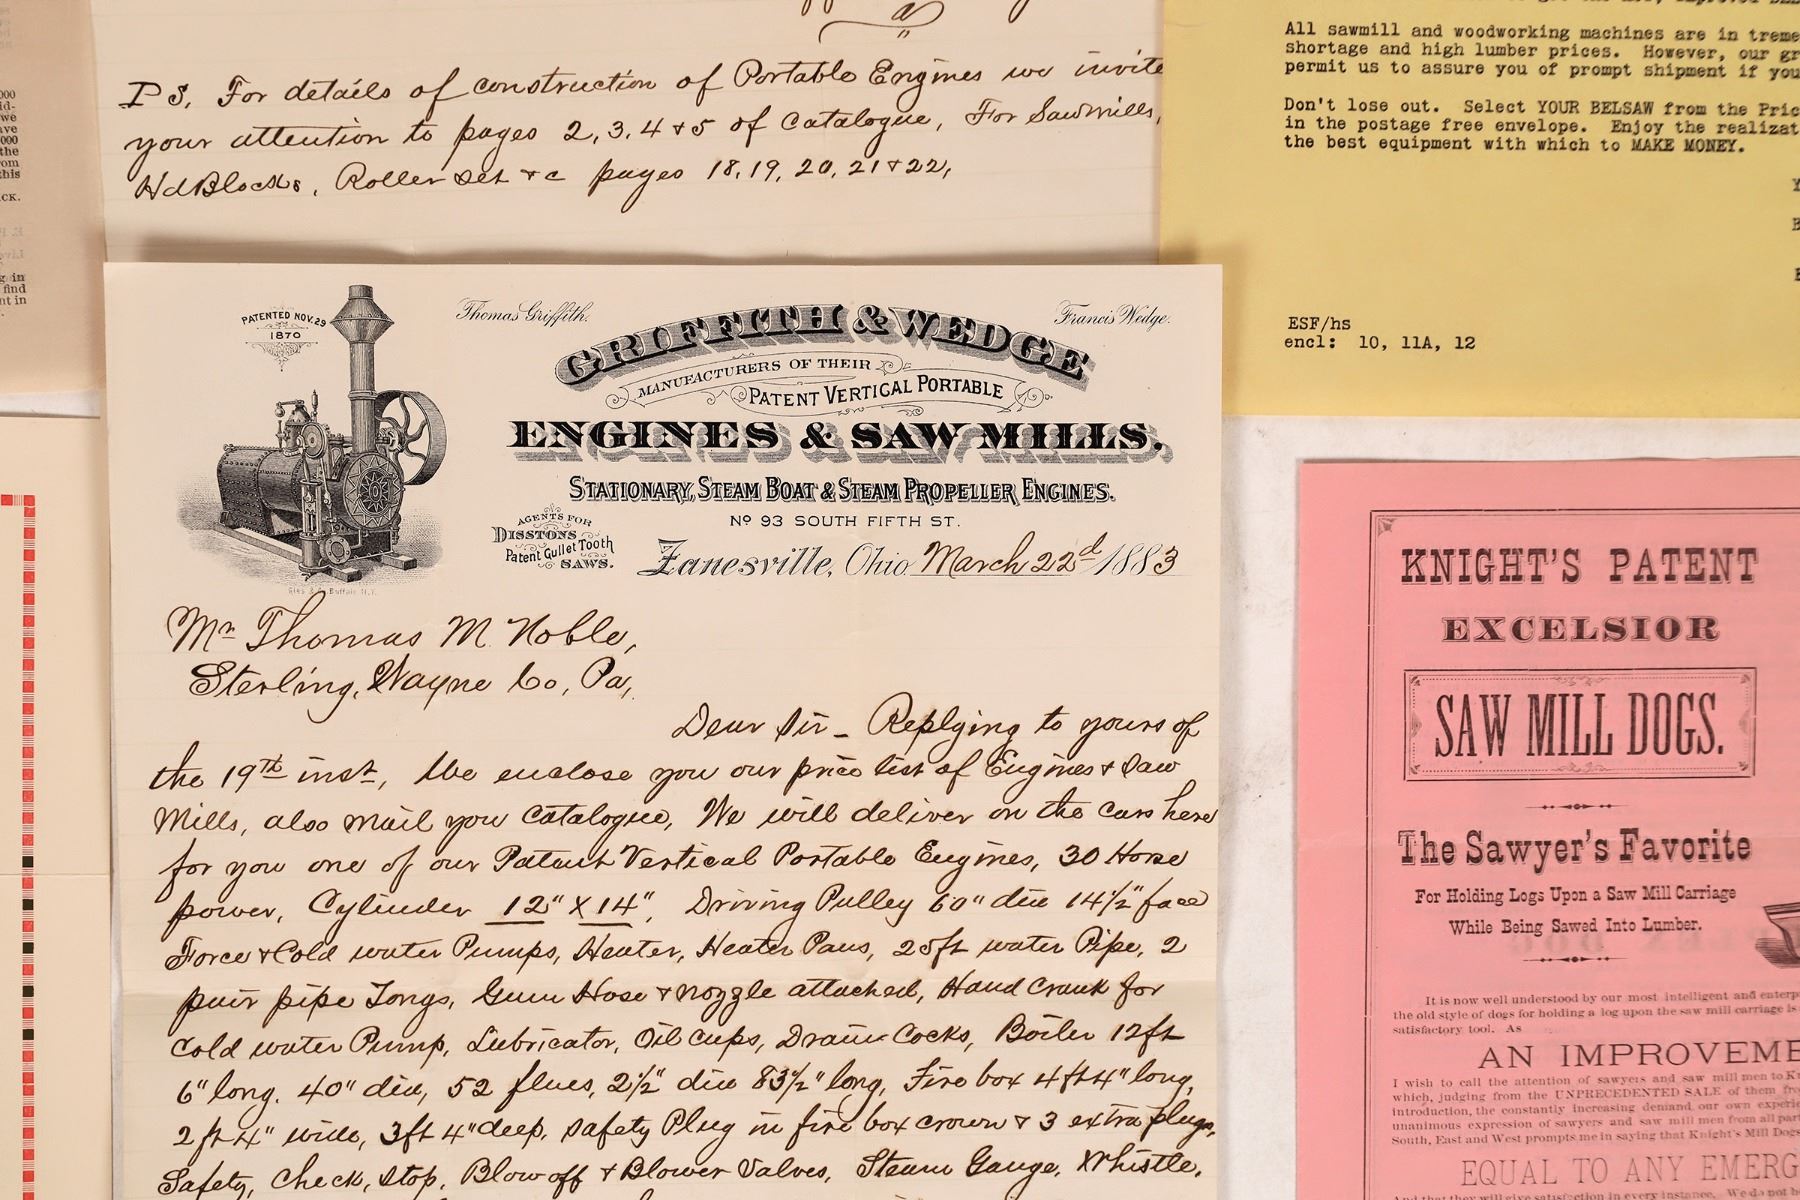 P.S. For details of construction of Portable Engines we invite
your attention to pages 2, 3, 4 & 5 of Catalogue, For Sawmills,
Hd Blocks, Roller Set &c pages 18, 19, 20, 21 & 22,
All sawmill and woodworking machines are in
shortage and high lumber prices. However, our
permit us to assure you of prompt shipment if you
Don't lose out. Select YOUR BELSAW from the
in the postage free envelope. Enjoy the
the best equipment with which to MAKE MONEY.
ESF/hs
encl: 10, 11A, 12
PATENTED NOV. 29
1870
Thomas Griffith.
Francis Wedge.
GRIFFITH & WEDGE
MANUFACTURERS OF THEIR
PATENT VERTICAL PORTABLE
ENGINES & SAW MILLS.
STATIONARY, STEAM BOAT & STEAM PROPELLER ENGINES.
No 93 SOUTH FIFTH ST.
AGENTS FOR
DISSTONS
Patent Gullet Tooth
SAWS.
Zanesville, Ohio March 22d 1883
Mr Thomas M. Noble,
Sterling, Wayne Co, Pa,
Dear Sir - Replying to yours of
the 19th inst, We enclose you our price list of Engines & Saw
Mills, also mail you Catalogue, We will deliver on the cars here
for you one of our Patent Vertical Portable Engines, 30 Horse
power, Cylinder 12" X 14", Driving Pulley 60" dia 14½" face
Force & Cold water Pumps, Heater, Heater Pans, 25ft water Pipe, 2
pair pipe Tongs, Gum Hose & nozzle attached, Hand Crank for
Cold water Pump, Lubricator, Oil Cups, Drain Cocks, Boiler 12ft
6" long. 40" dia, 52 flues, 2½" dia 83½" long, Fire box 4ft 4" long,
2ft 4" wide, 3ft 4" deep, Safety Plug in fire box crown & 3 extra plugs,
Safety, Check, Stop, Blow off & Blower Valves, Steam Gauge, Whistle,
KNIGHT'S PATENT
EXCELSIOR
SAW MILL DOGS.
The Sawyer's Favorite
For Holding Logs Upon a Saw Mill Carriage
While Being Sawed Into Lumber.
It is now well understood by our most intelligent and
the old style of dogs for holding a log upon the saw mill carriage is
satisfactory tool. As
AN
I wish to call the attention of sawyers and saw mill men to
which, judging from the UNPRECEDENTED SALE of them
introduction, the constantly increasing demand, our own
unanimous expression of sawyers and saw mill men from all
South, East and West prompts me in saying that Knight's Mill Dogs
EQUAL TO ANY